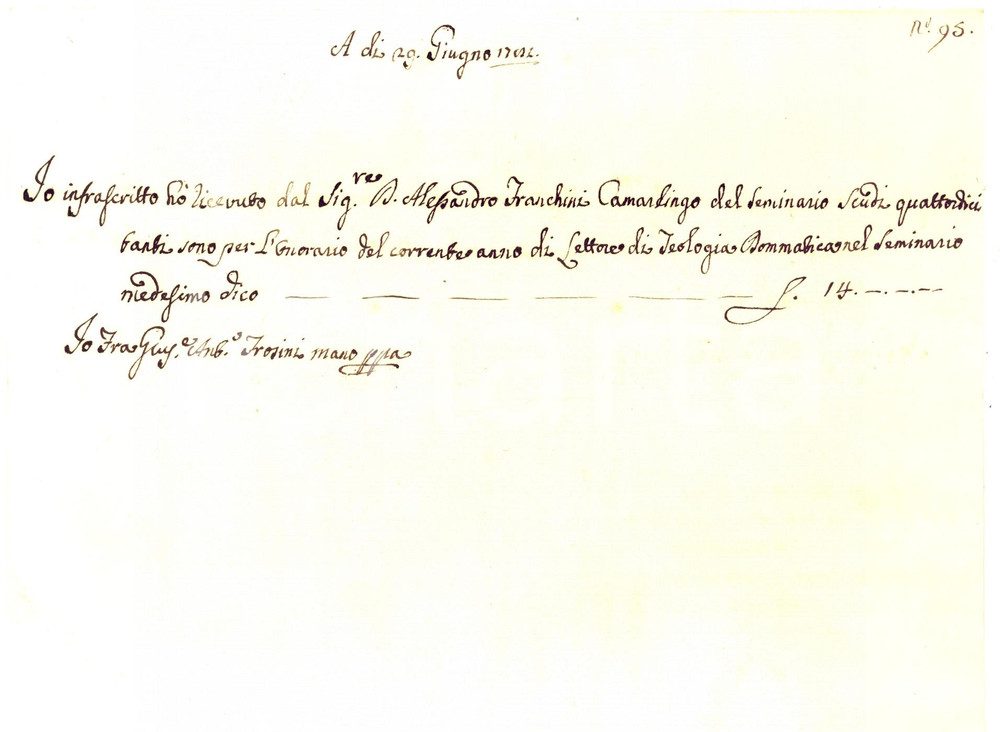 N.º 95.
A di 29. Giugno
Io infrascritto hò ricevuto dal Sig.re D. Alessandro Franchini Camarlingo del Seminario Scudi quattordici
tanti sono per l'Onorario del corrente anno di Lettore di Teologia Dommatica nel Seminario
medesimo dico — — — — — — S. 14. —.—.—
Io Fra Gius.e Ant.o Frosini mano ppa